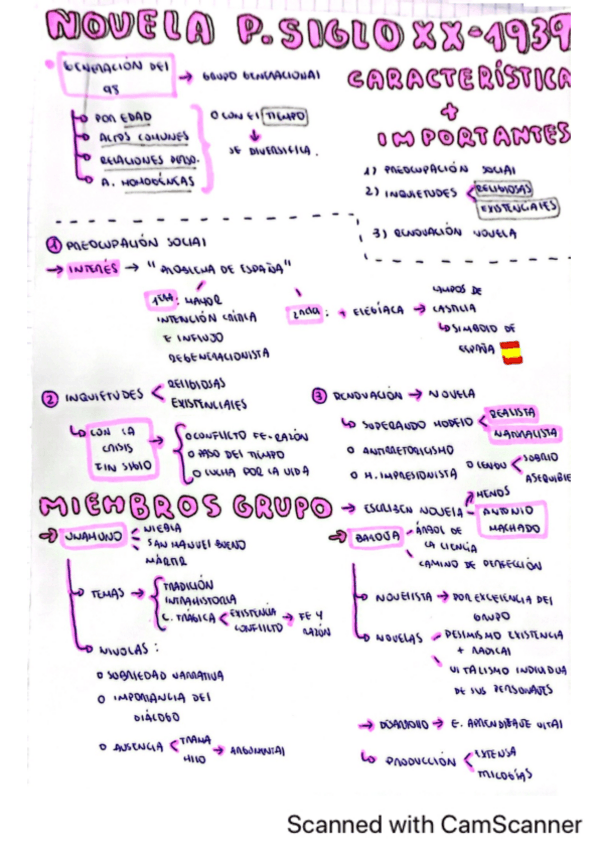 NOVELA P. SIGLO XX-1939
GENERACIÓN DEL 98 → GRUPO GENERACIONAL
POR EDAD
ACTOS COMUNES
RELACIONES PERSO.
A. HOMOGÉNEAS
O CON EL TIEMPO
↓
SE DIVERSIFICA.
CARACTERÍSTICA
+
IMPORTANTES
1) PREOCUPACIÓN SOCIAL
2) INQUIETUDES < RELIGIOSAS
EXISTENCIALES
3) RENOVACIÓN NOVELA
① PREOCUPACIÓN SOCIAL
→ INTERÉS → "PROBLEMA DE ESPAÑA"
1ERA: MAYOR
INTENCIÓN CRÍTICA
E INFLUJO
REGENERACIONISTA
2NDA: + ELEGÍACA → CAMPOS DE
CASTILLA
↳ SIMBOLO DE
ESPAÑA
② INQUIETUDES < RELIGIOSAS
EXISTENCIALES
↳ CON LA
CRISIS
FIN SIGLO
→ O CONFLICTO FE-RAZÓN
O PASO DEL TIEMPO
O LUCHA POR LA VIDA
③ RENOVACIÓN → NOVELA
↳ SUPERANDO MODELO < REALISTA
NATURALISTA
O ANTIRRETORICISMO
O M. IMPRESIONISTA
O LENGU < SOBRIO
ASEQUIBLE
MIEMBROS GRUPO → ESCRIBEN NOVELA - MENOS
ANTONIO
MACHADO
→ UNAMUNO < NIEBLA
SAN MANUEL BUENO
MÁRTIR
TEMAS → TRADICIÓN
INTRAHISTORIA
C. TRÁGICA < EXISTENCIA
CONFLICTO → FE Y
RAZÓN
NIVOLAS:
O SOBRIEDAD NARRATIVA
O IMPORTANCIA DEL
DIÁLOGO
O AUSENCIA < TRAMA
HILO → ARGUMENTAL
→ BAROJA - ÁRBOL DE
LA CIENCIA
CAMINO DE PERFECCIÓN
NOVELISTA → POR EXCELENCIA DEL
GRUPO
NOVELAS - PESIMISMO EXISTENCIA
+ RADICAL
VITALISMO INDIVIDUA
DE SUS PERSONAJES
→ E. APRENDIZAJE VITAL
↳ PRODUCCIÓN < EXTENSA
TRILOGÍAS
Scanned with CamScanner